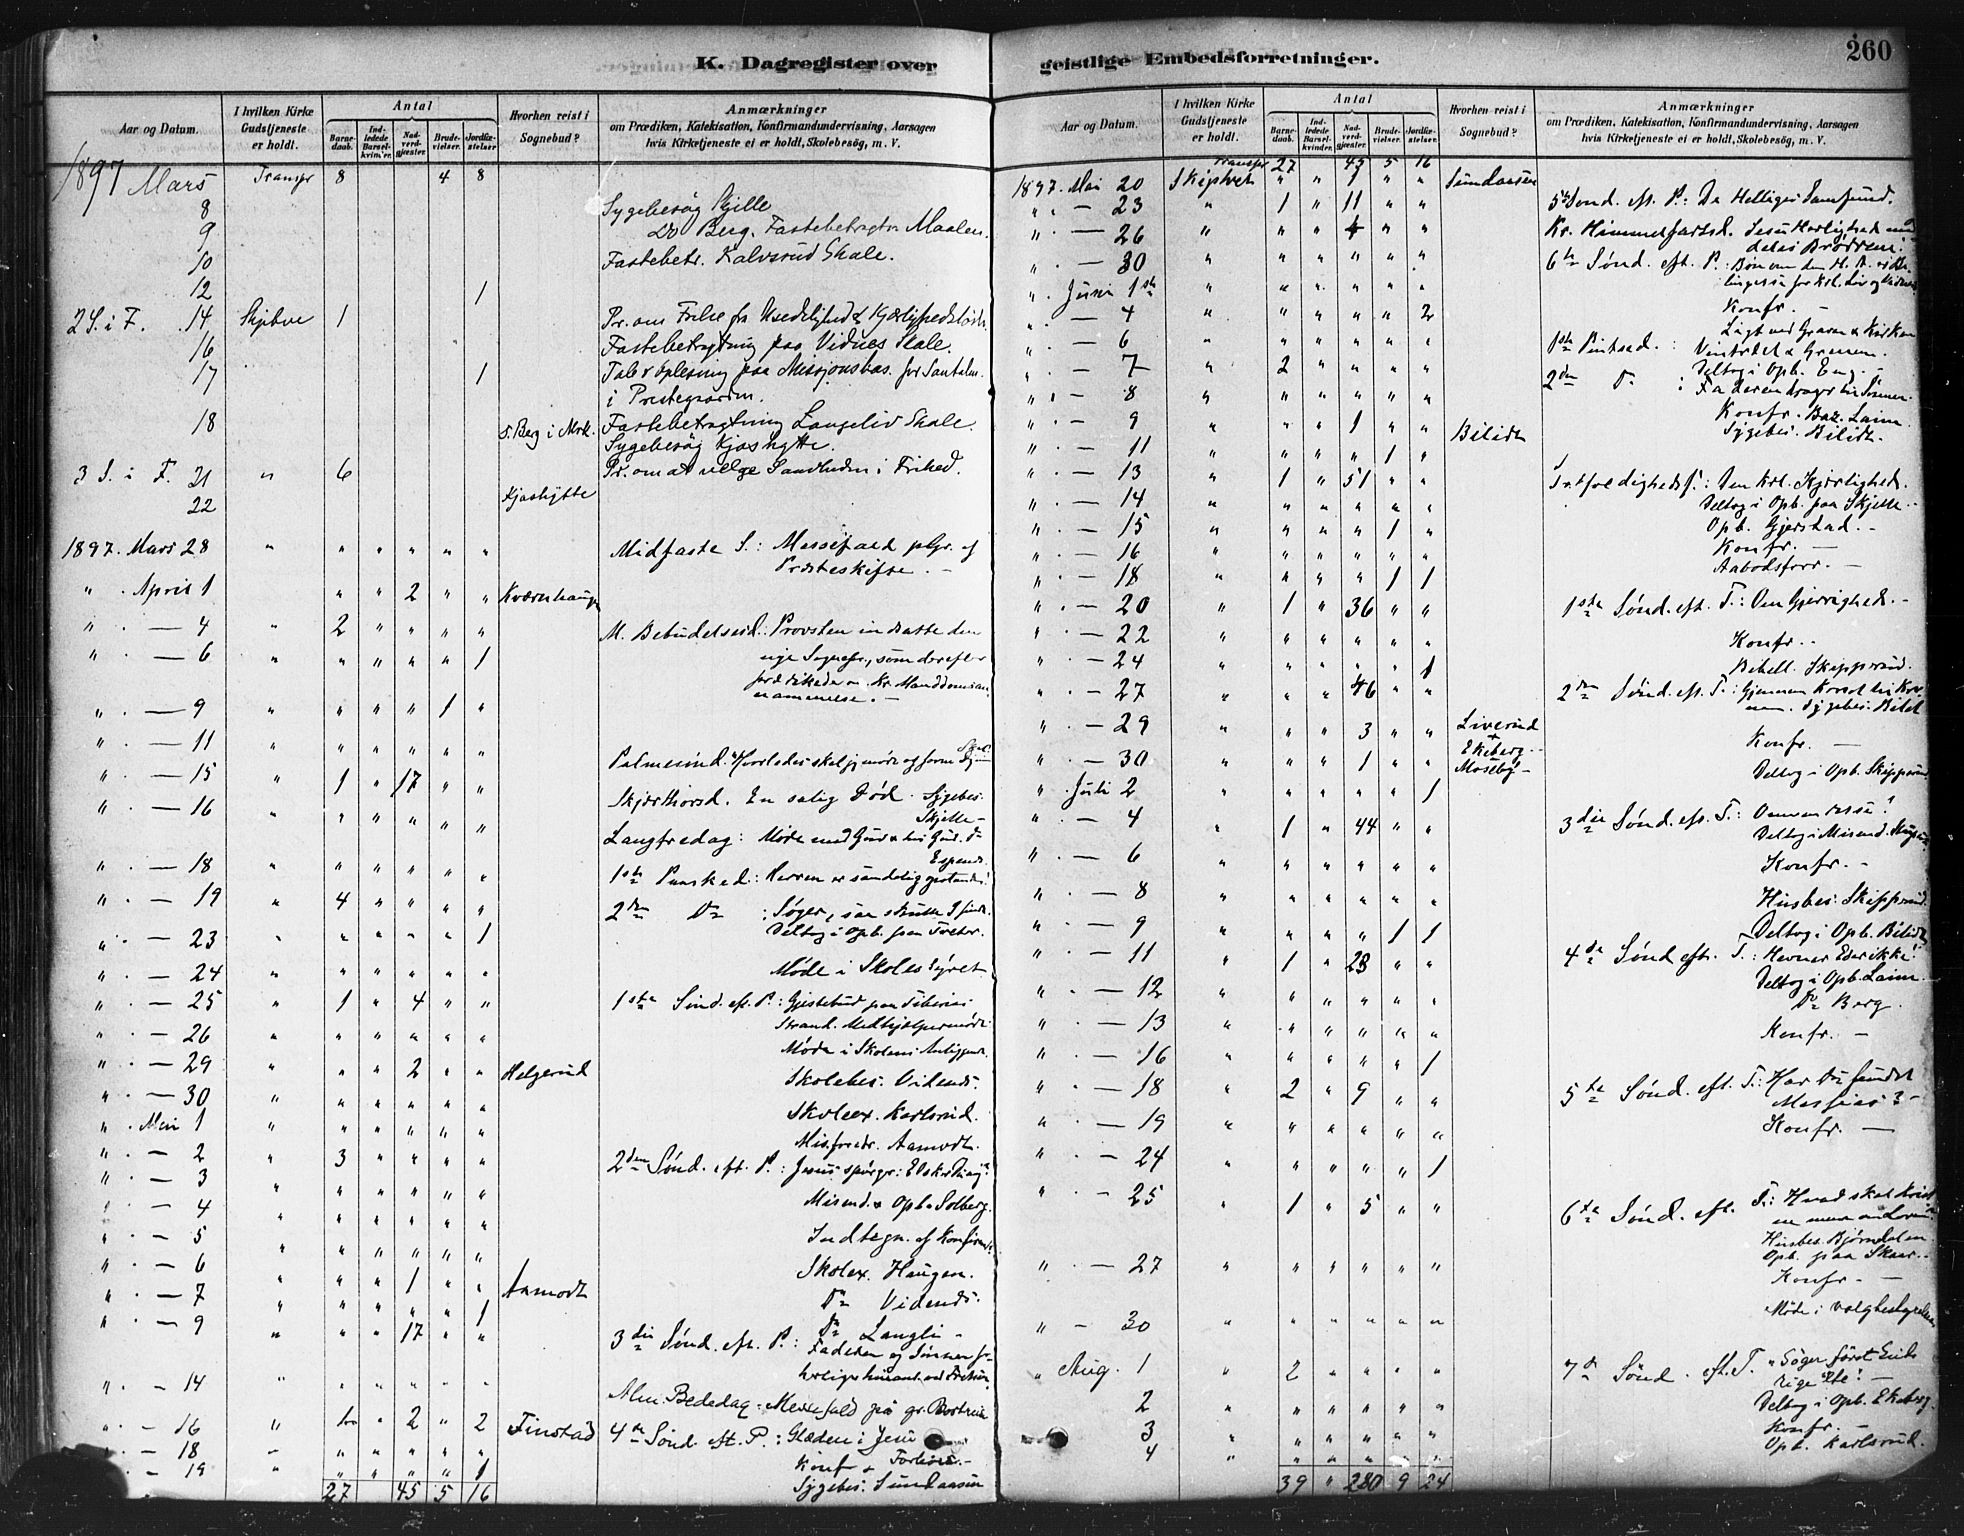 K. Dagregister over
Aar og Datum.
I hvilken Kirke Gudstjeneste er holdt.
Antal
Barne-daab.
Ind-ledede Barsel-kvinder.
Nad-verd-gjæster.
Brude-vielser.
Jordfæ-stelser
Hvorhen reist i Sognebud?
Anmærkninger
om Prædiken, Katekisation, Konfirmandundervisning, Aarsagen
hvis Kirketjeneste ei er holdt, Skolebesøg, m. V.
1897 Mars Transpr 8 4 8
8 Sygebesøg Skjelle
9 Do Berg. Fastebetragtn Maalen.
10 Fastebetr. Kalvsrud Skole.
12 1
2 S. i F. 14 Skiptve 1 Pr. om Frelse fra Usedelighed &
16 Fastebetragtning paa Vidnes Skole.
17 1 Tale & oplesning paa Missjonsbas. for Santalm.
i Prestegaarden.
18 S. Berg i Mrk. Fastebetragtning Langeliv Skole
Sygebesøg Kjoshytte.
3 S. i F. 21 " 6 Pr. om at velge Sandheden i Frihed.
22 Kjoshytte
1897. Mars 28 " " " " " " Midfaste S.: Messefald pgr. af
Præsteskifte. —
" . April 1 " " 2 " " Kværnhaugen
" . — 4 " 2 " " " " M. Bebudelsesd.: Provsten indsatte den
" . — 6 " " " " " 1 nye Sognepr., som derefter
prædikede om Kr. Manddoms an
nammelse. —
" . — 9 " " " " 1 "
" . — 11 " " " " " " Palmesønd. Hvorledes skal jeg møde
" . — 15 " 1 " 17 " " Skjærthorsd. En salig Død. Sygebes.
Skjelle —
" . — 16 " " " " " " Langfredag: Møde med Gud
" . — 18 " " " " " " 1ste Paasked.: Herren er sandelig opstanden!
" . — 19 " 4 " " " " 2den Do : Søger, saa skulle I finde.
Deltog i Opb. paa
" . — 23 " " " " " 1
" . — 24 " " " " " " Møde i Skolestyret
" . — 25 " 1 " 4 " " 1ste Sønd. eft. P.: Gjæstebud paa Tiberias
Strand. Medhjælpermøde
" . — 26 " " " " " " Møde i Skolens Anliggende.
" . — 29 " " " 2 " " Helgerud Skolebes. Vidnes.
" . — 30 " " " " " " Skoleex. Karlsrud.
" . Mai 1 " " " " " " Misforedr. Aamodt.
" . — 2 " 3 " " " " 2den Sønd. eft. P.: Jesus spørger: Elsker Du mig?
" . — 3 " " " " " " Misend. & Opb. Solberg.
" . — 4 " " " " " " Indtegn. af Konfirm.
" . — 5 " " " " " "
" . — 6 " " " 1 " " Aamodt Skolex. Haugen.
" . — 7 " " " " " 1 Do Vidnes.
" . — 9 " " " 17 " " Do Langli —
3die Sønd. eft. P.: Faderen og Sønnen
" . — 14 " " " " " " Alm. Bededag. Messefald på gr.
" . — 16 " " 2 " 2 Finstad 4de Sønd eft. P.: Glæden i Jesu
" . — 18 " " " " " " Konf
" . — 19 " " " " " 1 Sygebes. Sundaasen
27 45 5 16
geistlige Embedsforretninger.
260
Aar og Datum.
I hvilken Kirke Gudstjeneste er holdt.
Antal
Barne-daab.
Ind-ledede Barsel-kvinder.
Nad-verd-gjæster.
Brude-vielser.
Jordfæ-stelser.
Hvorhen reist i Sognebud?
Anmærkninger
om Prædiken, Katekisation, Konfirmandundervisning, Aarsagen
hvis Kirketjeneste ei er holdt, Skolebesøg, m. V.
Transpr 27 45 5 16
1897. Mai 20 Skiptvet " " 1 " " Sundaasen
" . — 23 " 1 " 11 " " 5te Sønd. eft. P.: De Helliges Samfund.
" . — 26 " " " 4 " " Kr. Himmelfartsd. Jesu Herlighed
deles Brødrene!
" . — 30 " " " " " " 6te Sønd. eft. P.: Bøn om den H. A.
" . Juni 1ste " " " " " " Konfr. —
" . — 4 " " " " " 2
" . — 6 " " " " " " 1ste Pintsed.: Vintræet & Grenene.
" . — 7 " 2 " " " " Deltog i Opb. Eng. —
2den Do : Faderen drager til Sønnen
" . — 8 " " " " " " Konfr. Baz. Laim
" . — 9 " " " 1 " " Bilidt Sygebes. Bilidt.
" . — 11 " " " " 1 "
" . — 13 " 1 " 51 " " Trefoldighedsf.: Den krl. Kjærlighed.
" . — 14 " " " " " " Deltog i Opb. paa Skjelle.
" . — 15 " " " " 1 " Opb. Gjerstad. —
" . — 16 " " " " " " Konfr. —
" . — 18 " " " " 1 1 Aabodsforr. —
" . — 20 " 1 " 36 " " 1ste Sønd. eft. T.: Om Gjerrighed. —
" . — 22 " " " " " " Konfr. —
" . — 24 " " " " " 1 Bibell. Skipperud.
" . — 27 " " " 46 " " 2den Sønd. eft. T.: Gjennem Korset til Kro
nen. Sygebes. Bilidt
" . — 29 " " " 3 " " Liverud + Ekeberg — Konfr. —
" . — 30 " " " 1 " " Moseby — Deltog i Opb. Skipperud
" . Juli 2 " " " " " 1
" . — 4 " 1 " 44 " " 3die Sønd. eft. T.: Omvender Eder!
Deltog i Misend.
" . — 6 " " " " " " Konfr. —
" . — 8 " " " " " " Husbes. Skipperud.
" . — 9 " " " " 1 1 Deltog i Opb. Bilidt
" . — 11 " 1 " 23 " " 4de Sønd eft. T.: Hevner Eder ikke!
Deltog i Opb. Laim.
" . — 12 " " " " " " Do Berg.
" . — 13 " " " " " " Konfr. —
" . — 16 " " " " " 1
" . — 18 " 2 " 9 " " 5te Sønd. eft. T.: Har Du fundet
Messias? —
" . — 19 " " " " " " Konfr. —
" . — 24 " " " " " 1
" . — 25 " 1 " 5 " " 6te Sønd. eft. T.: Hvad skal
Husbes. Bjørndalen
Opb. paa Skaar. —
" . — 27 " " " " " " Konfr. —
Møde i Valgbestyrelsen
" — 30 " " " " " "
" Aug. 1 " 2 " " " " 7de Sønd. eft. T. "Søger først Guds
Rige" etc! —
2 " " " " " " Deltog i Opb. Ekeberg.
3 " " " " " " Konfr. —
4 " " " " " " Opb. Karlsrud.
39 " 280 9 24